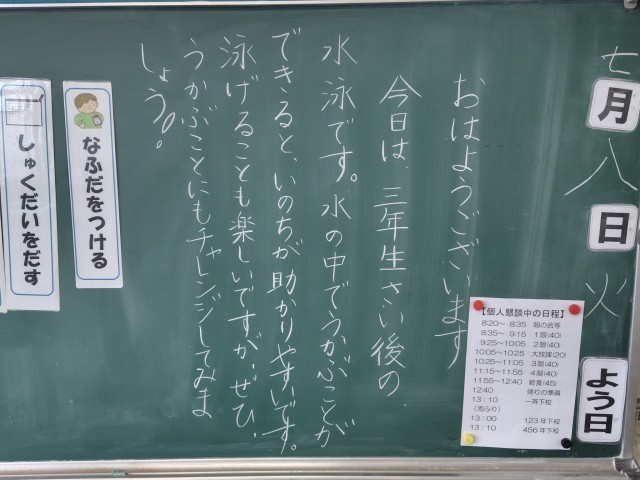 七月八日火よう日
おはようございます
今日は、三年生さい後の
水泳です。水の中でうかぶことが
できると、いのちが助かりやすいです。
泳げることも楽しいですが、ぜひ、
うかぶことにもチャレンジしてみま
しょう。
なふだをつける
しゅくだいをだす
【個人懇談中の日程】
8:20～ 8:35 朝の会等
8:35～ 9:15 1限(40)
9:25～10:05 2限(40)
10:05～10:25 大放課(20)
10:25～11:05 3限(40)
11:15～11:55 4限(40)
11:55～12:40 給食(45)
12:40 帰りの準備
13:10 一斉下校
(雨ふり)
13:00 123年下校
13:10 456年下校